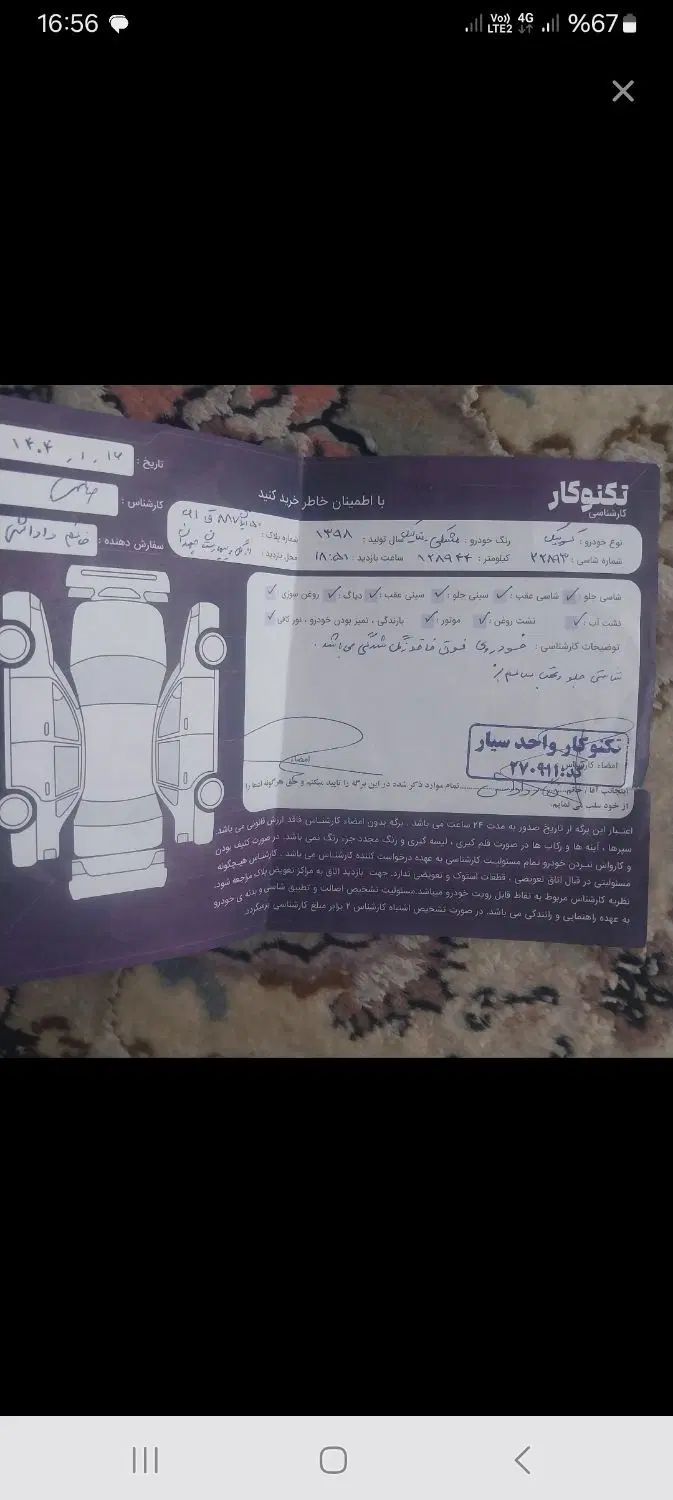 16:56
Vo)) LTE2 4G %67
تاریخ : ۱۴۰۴ ٫ ۱ ٫ ۱۶
کارشناس :
سفارش دهنده : خانم
تکنوکار
کارشناسی
با اطمینان خاطر خرید کنید
نوع خودرو : کوییک رنگ خودرو : مشکی سال تولید : ۱۳۹۸ شماره پلاک :
شماره شاسی : ۲۲۸۹۳ کیلومتر : ۱۲۸۹۴۴ ساعت بازدید : ۱۸:۵۱ محل بازدید :
شاسی جلو : ✓ شاسی عقب : ✓ سینی جلو : ✓ سینی عقب : ✓ دیاگ : ✓ روغن سوزی ✓
نشت آب : ✓ نشت روغن : ✓ موتور : ✓ بارندگی ، تمیز بودن خودرو ، نور کافی ✓
توضیحات کارشناسی : خودروی فوق فاقد رنگ شدگی می باشد .
شاسی جلو و عقب سالم
تکنوکار واحد سیار
کد: ۲۷۰۹۱۱
امضاء کارشناس
امضاء
اینجانب آقا / خانم تمام موارد ذکر شده در این برگه را تایید میکنم و حق هرگونه ادعا را
از خود سلب می نمایم.
اعتبار این برگه از تاریخ صدور به مدت ۲۴ ساعت می باشد . برگه بدون امضاء کارشناس فاقد ارزش قانونی می باشد.
سپرها ، آینه ها و رکاب ها در صورت قلم گیری ، لیسه گیری و رنگ مجدد جزء رنگ نمی باشد. در صورت کثیف بودن
و کارواش نبردن خودرو تمام مسئولیت کارشناسی به عهده درخواست کننده کارشناس می باشد . کارشناس هیچگونه
مسئولیتی در قبال اتاق تعویضی ، قطعات استوک و تعویضی ندارد. جهت بازدید اتاق به مراکز تعویض پلاک مراجعه شود.
نظریه کارشناس مربوط به نقاط قابل رویت خودرو میباشد.مسئولیت تشخیص اصالت و تطبیق شاسی و بدنه ی خودرو
به عهده راهنمایی و رانندگی می باشد. در صورت تشخیص اشتباه کارشناس ۲ برابر مبلغ کارشناسی برمیگردد.